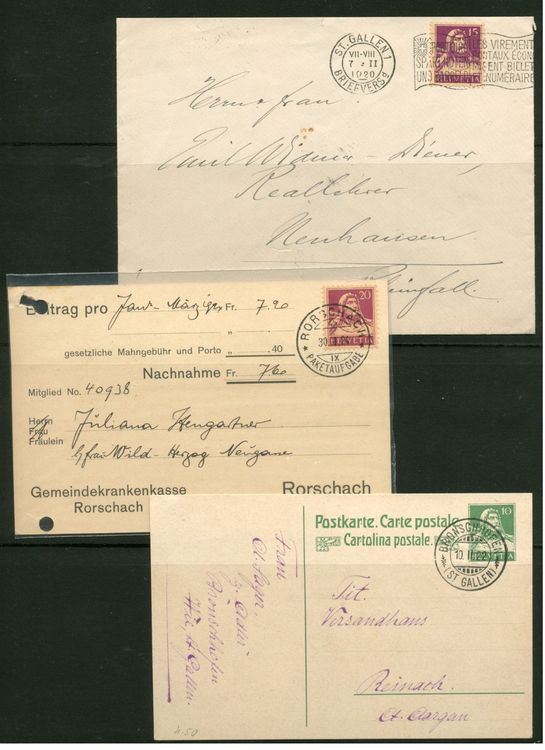 ST. GALLEN 1
VII-VIII
7. II
1920
BRIEFVERSd
15
HELVETIA
VIREMENT
POSTAUX ÉCON
BILLET
NUMÉRAIRE
Herrn & Frau
Emil Widmer-Diener,
Reallehrer
Neuhausen.
Rheinfall.
Beitrag pro Janr-März ger Fr. 7.20
"
gesetzliche Mahngebühr und Porto " .40
Nachnahme Fr. 7.60
Mitglied No. 40938
Herrn
Frau
Fräulein
Juliana Hengartner
b/frau Wild-Herzog Neugasse
Gemeindekrankenkasse Rorschach
Rorschach
20
HELVETIA
RORSCHACH
30.
IX
PAKETAUFGABE
Postkarte. Carte postale.
Cartolina postale.
10
HELVETIA
BRONSCHHOFEN
10. II. 22
(ST. GALLEN)
Tit.
Versandhaus
Reinach.
Ct. Aargau
Frau
z. Adler
Bronschhofen
St. Gallen.
4.50